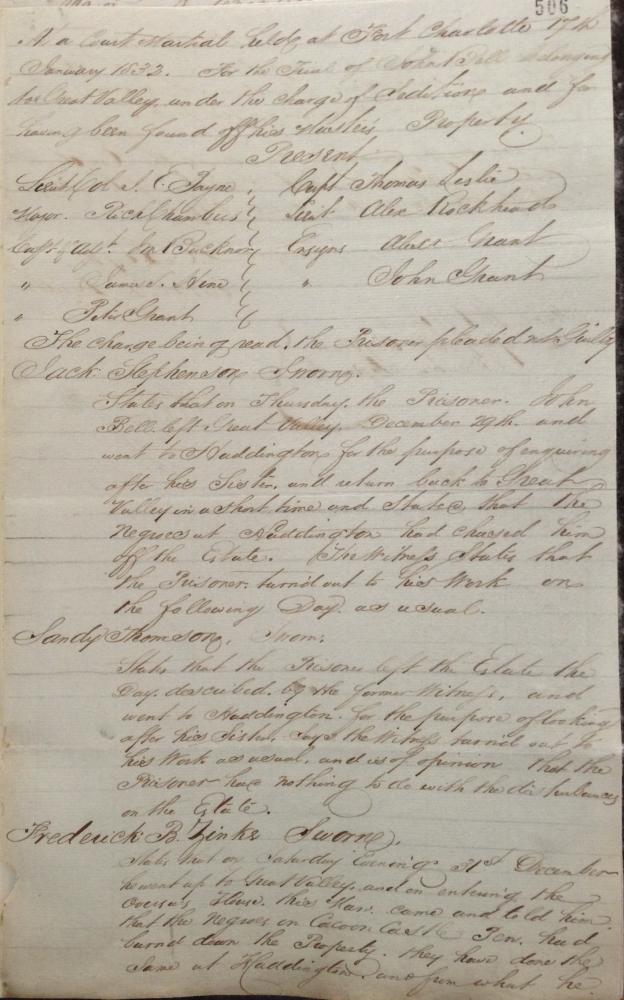 506
At a Court Martial held at Fort Charlotte 17th
January 1832. For the Trial of John Bell belonging
to Great Valley, under the charge of Sedition and for
having been found off his Master's Property.
Present
Lieut Col J. E. Payne, Capt Thomas Leslie
Major. Rich Chambers Lieut Alex Lockhead
Capt & Adjt. Buckner Ensigns Albert Grant
" James S. Hine " John Grant
" Peter Grant
The charge being read, the Prisoner pleaded not Guilty
Jack Stephenson Sworn.
States that on Thursday. the Prisoner. John
Bell left Great Valley, December 29th. and
went to Haddington for the purpose of enquiring
after his Sister, and return back to Great
Valley in a short time and stated, that the
Negroes at Haddington had chased him
off the Estate. The Witness States that
the Prisoner. turn'd out to his Work on
the following Day. as usual.
Sandy Thomson, Sworn.
States that the Prisoner left the Estate the
Day. described. by the former Witness, and
went to Haddington. for the purpose of looking
after his Sister. Says the Witness turn'd out to
his Work as usual, and is of opinion that the
Prisoner had nothing to do with the disturbances
on the Estate.
Frederick B. Zinke Sworn.
States that on Saturday Evening 31st December
he went up to Great Valley, and on entering the
Overseers House. this Man. came and told him
that the Negroes on Cacoon Castle Pen. had
burnd down the Property. they have done the
Same at Haddington and from what he